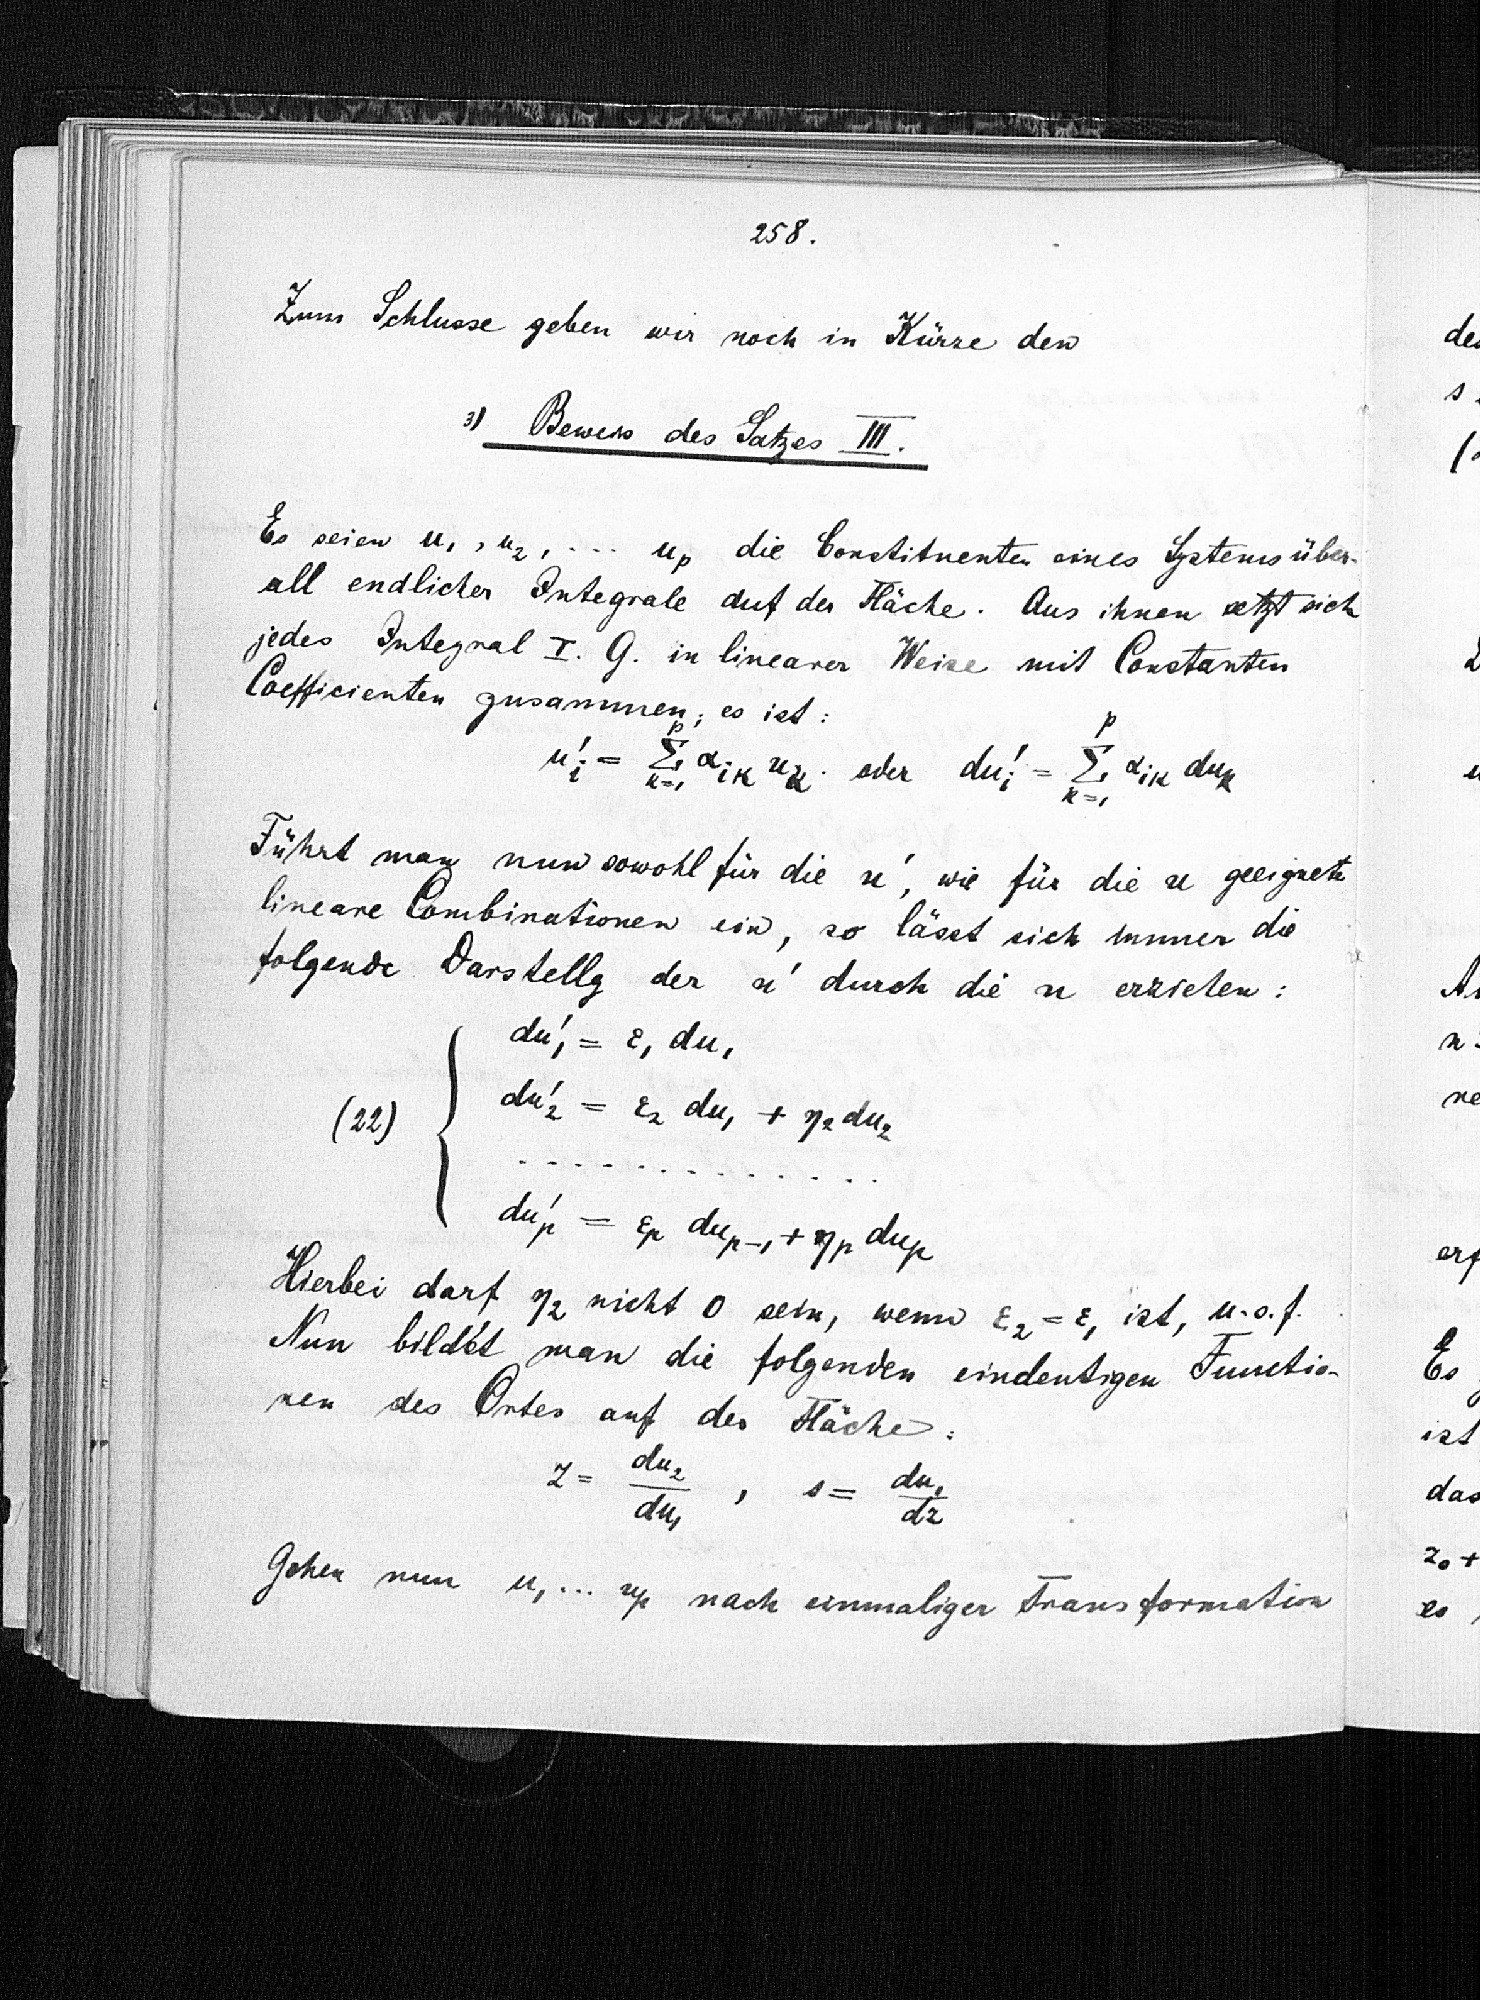 258.
Zum Schlusse geben wir noch in Kürze den
3) Beweis des Satzes III.
Es seien u₁, u₂, ... uₚ die Constituenten eines Systems über-
all endlicher Integrale auf der Fläche. Aus ihnen setzt sich
jedes Integral I. G. in linearer Weise mit Constanten
Coefficienten zusammen; es ist:
u′ᵢ = Σ_{k=1}^{p} α_{ik} u_k oder du′ᵢ = Σ_{k=1}^{p} α_{ik} du_k
Führt man nun sowohl für die u′, wie für die u geeignete
lineare Combinationen ein, so lässt sich immer die
folgende Darstellg der u′ durch die u erzielen:
du′₁ = ε₁ du₁
(22) { du′₂ = ε₂ du₁ + η₂ du₂
. . . . . . . . . . . . .
du′ₚ = εₚ duₚ₋₁ + ηₚ duₚ
Hierbei darf η₂ nicht 0 sein, wenn ε₂ = ε₁ ist, u.s.f.
Nun bildet man die folgenden eindeutigen Functio-
nen des Ortes auf der Fläche:
z = du₂/du₁ , s = du₁/dz
Gehen nun u₁ ... uₚ nach einmaliger Transformation
s
u
ist
das
z₀ +
Es
es